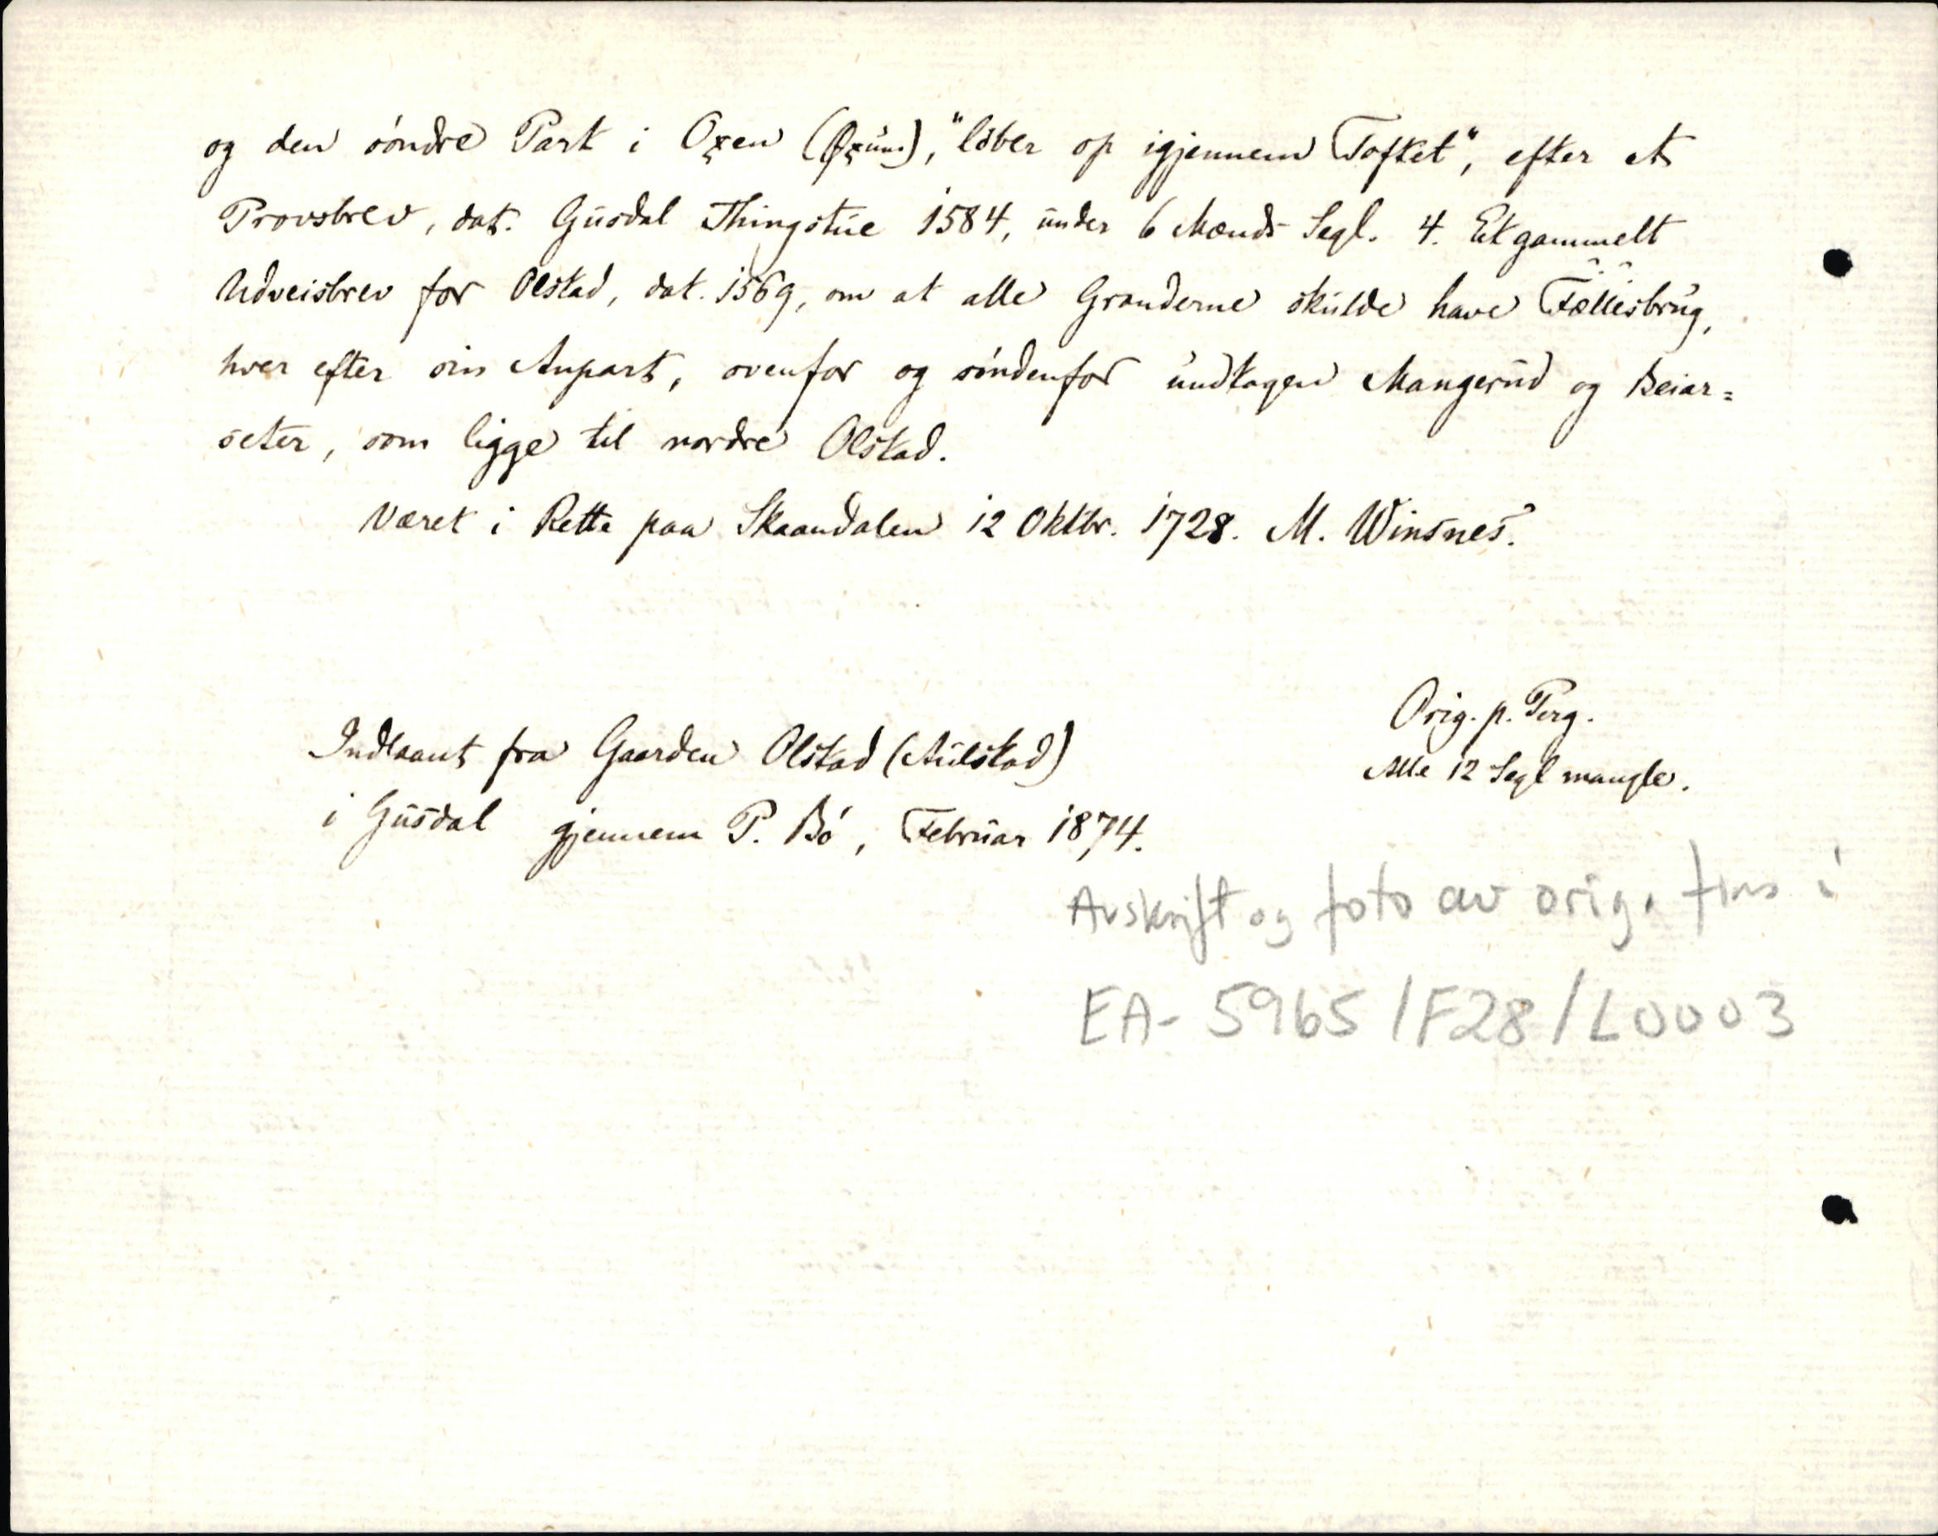 og den söndre Part i Oxen (Øxum), "löber op igjennem Toftet", efter et
Provsbrev, dat. Gusdal Thingstue 1584, under 6 Mænds Segl. 4. Et gammelt
Udveisbrev for Olstad, dat. 1569, om at alle Granderne skulde have Fællesbrug,
hver efter sin Anpart, ovenfor og söndenfor undtagen Mangerud og Beiar=
seter, som ligge til nordre Olstad.
Været i Rette paa Skaandalen 12 Oktbr. 1728. M. Winsnes.
Orig. p. Perg.
Alle 12 Segl mangle.
Indlaant fra Gaarden Olstad (Aulstad)
i Gusdal gjennem P. Bö, Februar 1874.
Avskrift og foto av orig. fins i
EA-5965/F28/L0003